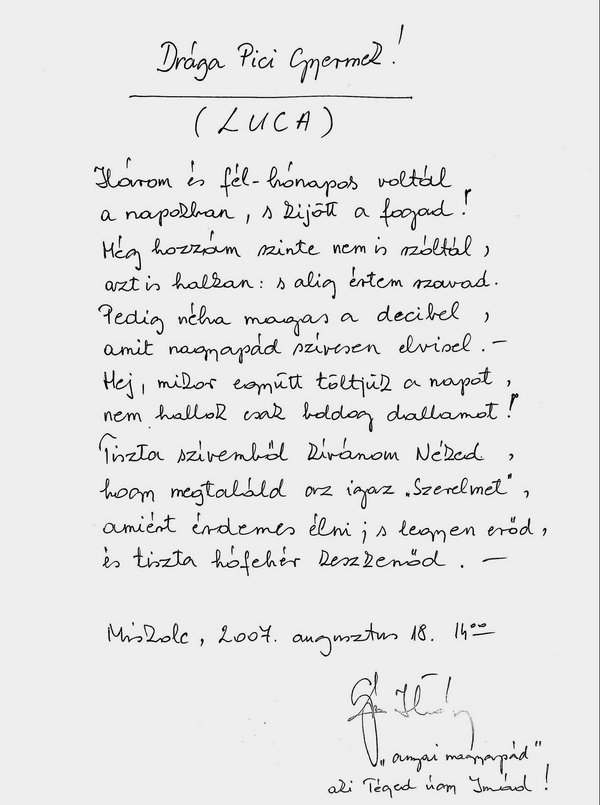 Drága Pici Gyermek!
(LUCA)
Három és fél-hónapos voltál
a napokban, s kijött a fogad!
Még hozzám szinte nem is szóltál,
azt is halkan: s alig értem szavad.
Pedig néha magas a decibel,
amit nagyapád szívesen elvisel. –
Hej, mikor együtt töltjük a napot,
nem hallok csak boldog dallamot!
Tiszta szívemből kívánom Néked,
hogy megtaláld az igaz „Szerelmet",
amiért érdemes élni; s legyen erőd,
és tiszta hófehér keszkenőd. –
Miskolc, 2007. augusztus 18. 14⁰⁰
„anyai nagyapád"
aki Téged úgy Imád!